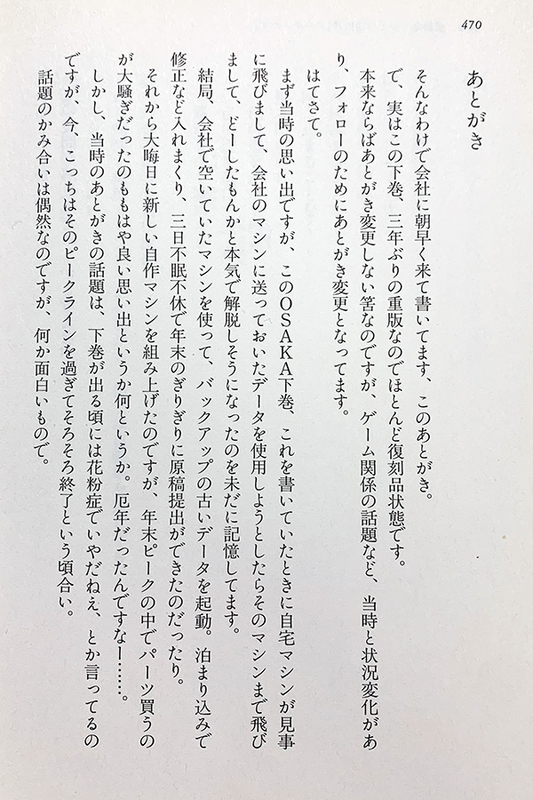 470
あとがき
そんなわけで会社に朝早く来て書いてます、このあとがき。
で、実はこの下巻、三年ぶりの重版なのでほとんど復刻品状態です。
本来ならばあとがき変更しない筈なのですが、ゲーム関係の話題など、当時と状況変化があ
り、フォローのためにあとがき変更となってます。
はてさて。
まず当時の思い出ですが、このOSAKA下巻、これを書いていたときに自宅マシンが見事
に飛びまして、会社のマシンに送っておいたデータを使用しようとしたらそのマシンまで飛び
まして、どーしたもんかと本気で解脱しそうになったのを未だに記憶してます。
結局、会社で空いていたマシンを使って、バックアップの古いデータを起動。泊まり込みで
修正など入れまくり、三日不眠不休で年末のぎりぎりに原稿提出ができたのだったり。
それから大晦日に新しい自作マシンを組み上げたのですが、年末ピークの中でパーツ買うの
が大騒ぎだったのももはや良い思い出というか何というか。厄年だったんですなー……。
しかし、当時のあとがきの話題は、下巻が出る頃には花粉症でいやだねえ、とか言ってるの
ですが、今、こっちはそのピークラインを過ぎてそろそろ終了という頃合い。
話題のかみ合いは偶然なのですが、何か面白いもので。